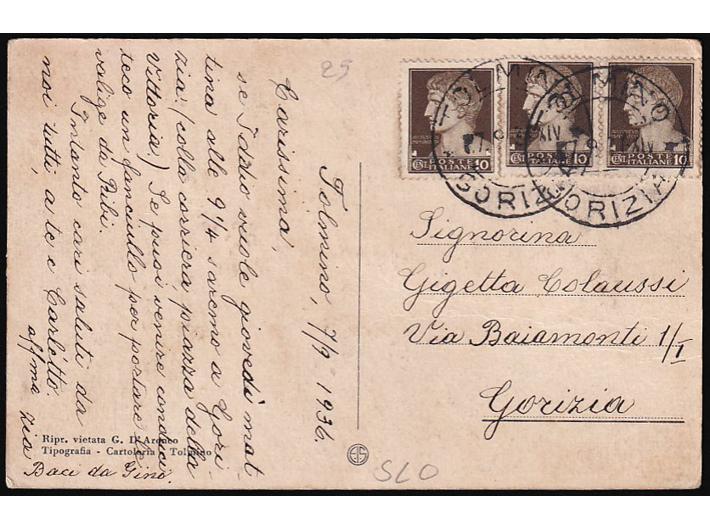 Tolmino, 7/9 1936.
Carissima,
se Iddio vuole giovedì mat
tina alle 9¼ saremo a Gori
zia: (colla corriera, piazza della
Vittoria) Se puoi venire conduci
teco un fanciullo per portare le
valige da Bibi.
Intanto cari saluti da
noi tutti, a te e Carletto.
aff/ma zia
Baci da Gino.
Ripr. vietata G. D'Aronco
Tipografia - Cartoleria - Tolmino
25
SLO
TOLMINO
7.9. XIV
GORIZIA
TOLMINO
7.9. XIV
GORIZIA
CENT POSTE ITALIANE 10
CENT POSTE ITALIANE 10
CENT POSTE ITALIANE 10
Signorina
Gigetta Colaussi
Via Baiamonti 1/I
Gorizia